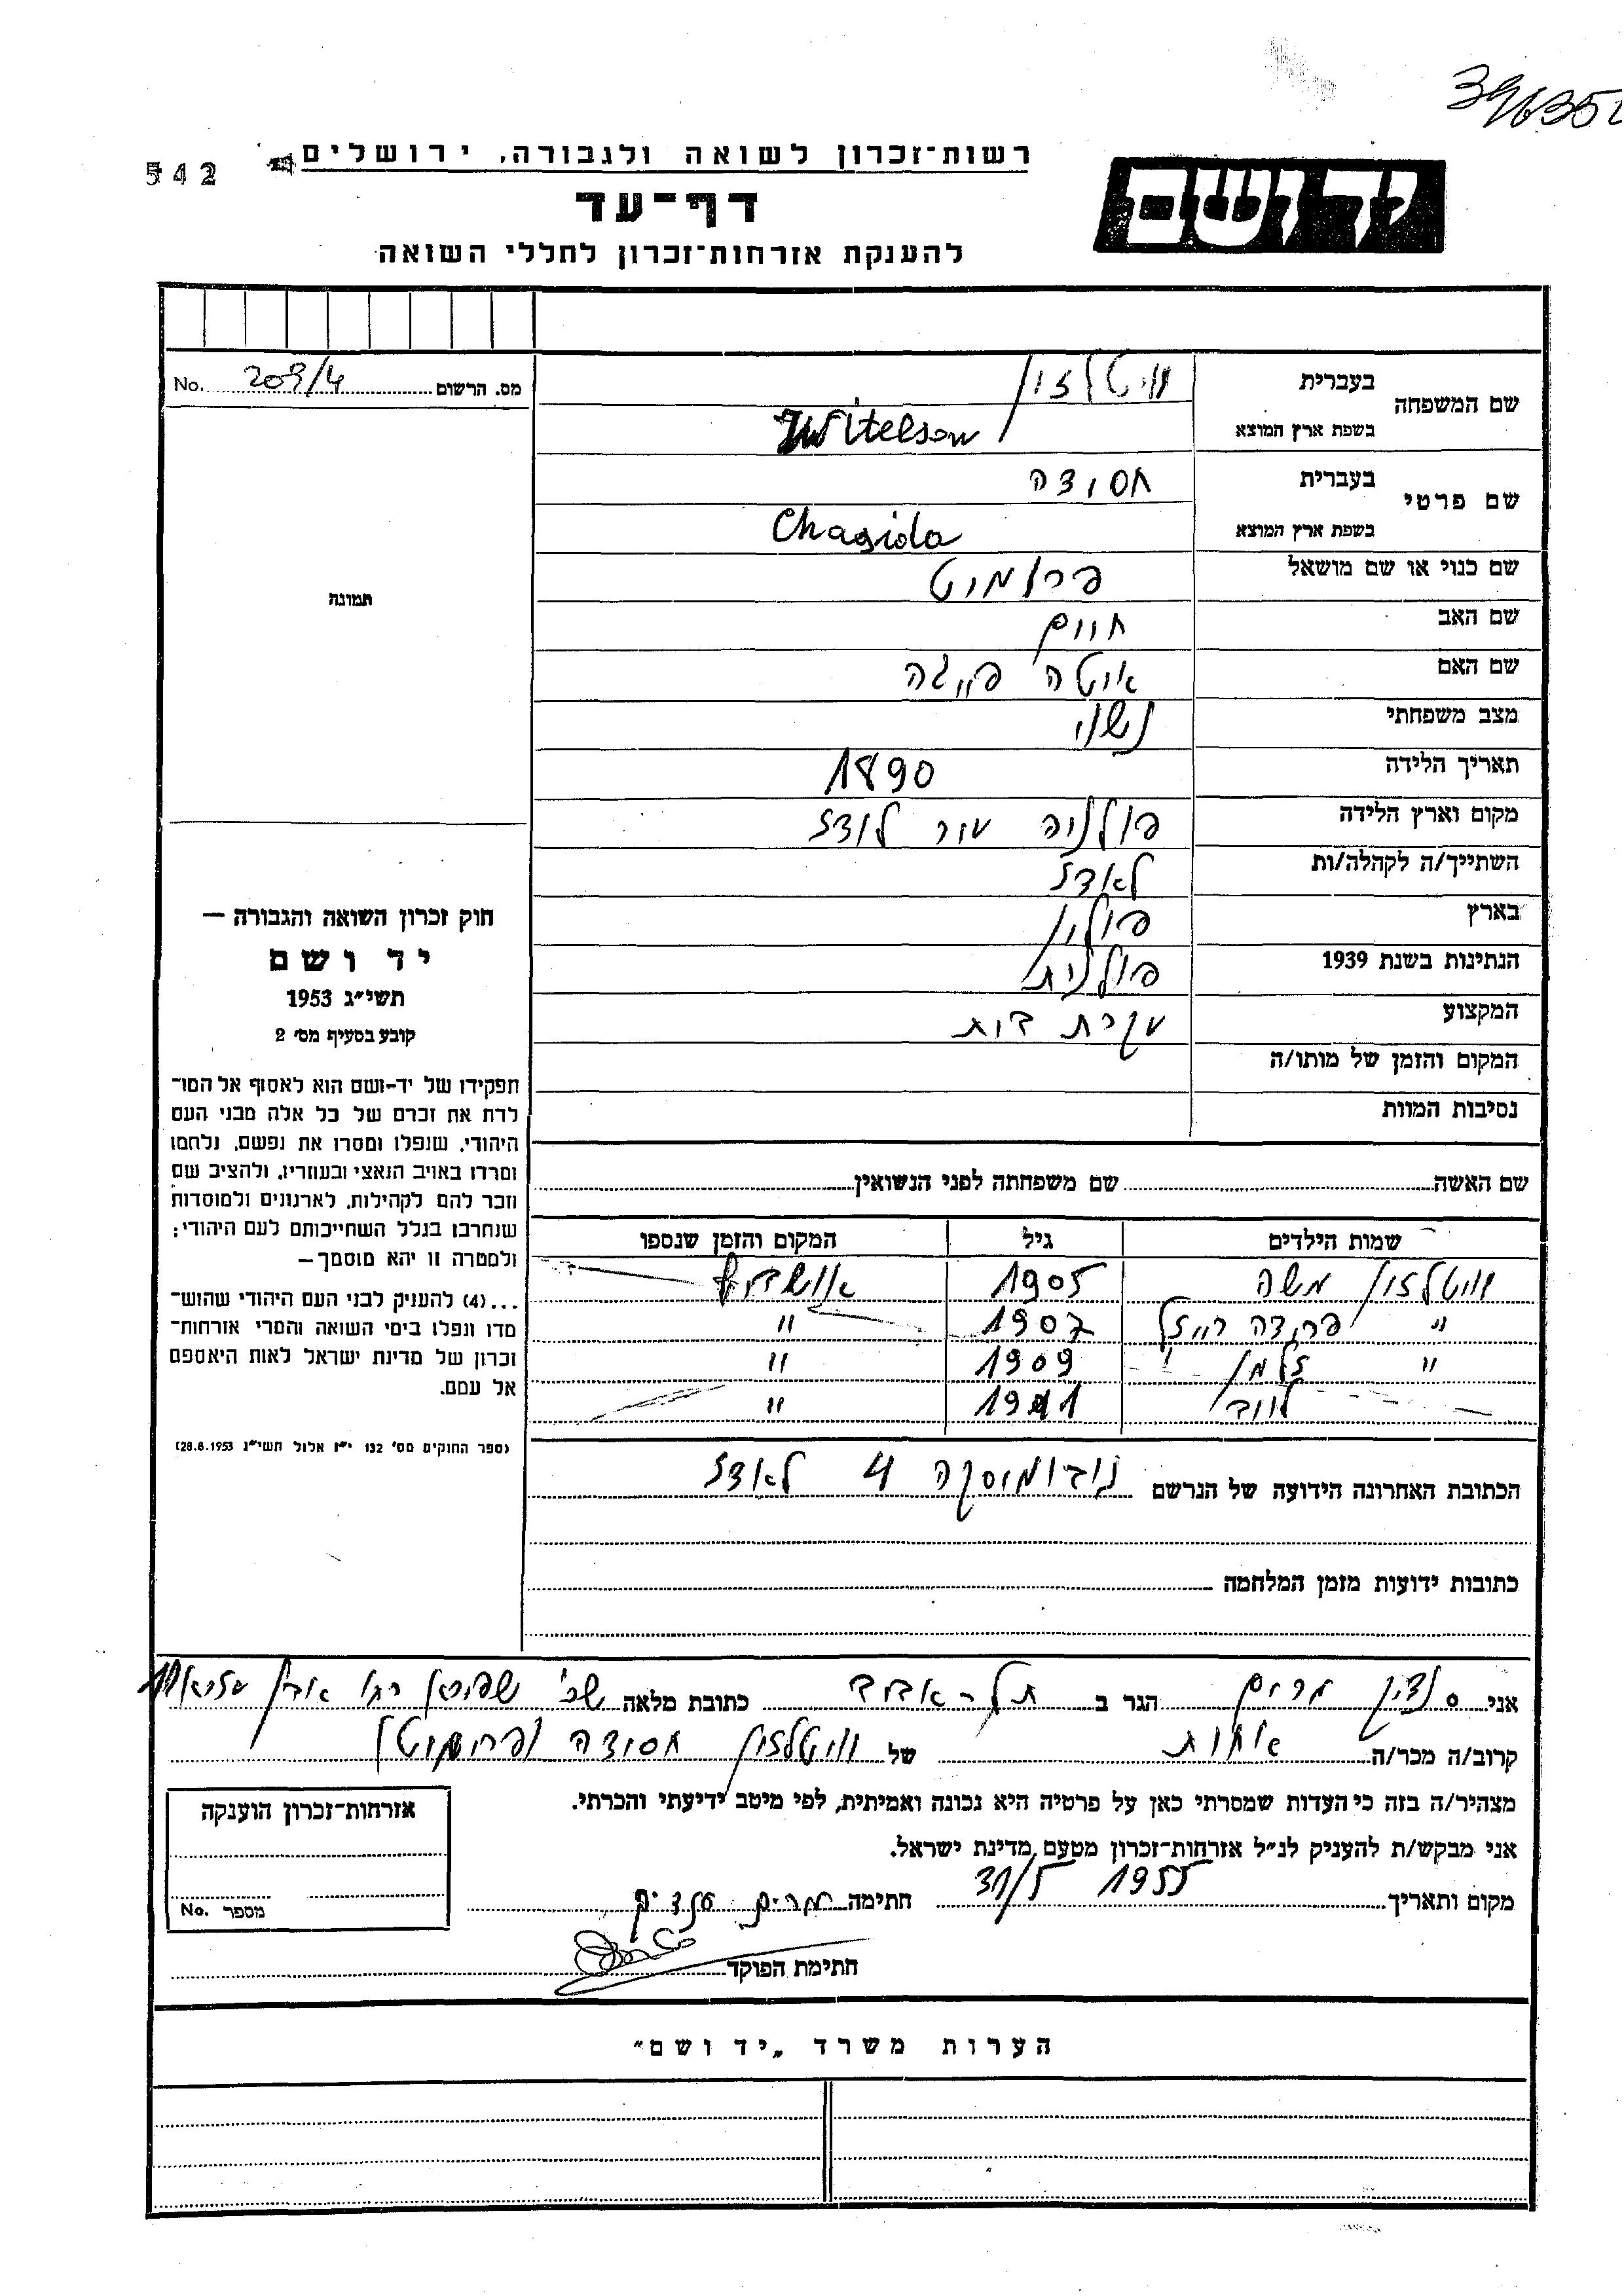 רשות־זכרון לשואה ולגבורה, ירושלים
542
דף־עד
להענקת אזרחות־זכרון לחללי השואה
יד ושם
מס. הרשום 209/4 No.
שם המשפחה
בעברית
וויטלזון
בשפת ארץ המוצא
Witelson
שם פרטי
בעברית
חסידה
בשפת ארץ המוצא
Chasida
שם כנוי או שם מושאל
פרומיט
שם האב חיים
שם האם איטה פייגה
מצב משפחתי נשוי
תאריך הלידה 1890
מקום וארץ הלידה פולניה עיר לודז
השתייך/ה לקהלה/ות לאדז
בארץ פולין
הנתינות בשנת 1939 פולנית
המקצוע עקרת בית
המקום והזמן של מותו/ה
נסיבות המוות
תמונה
חוק זכרון השואה והגבורה —
יד ושם
תשי״ג 1953
קובע בסעיף מס׳ 2
תפקידו של יד-ושם הוא לאסוף אל המו־
לדת את זכרם של כל אלה מבני העם
היהודי, שנפלו ומסרו את נפשם, נלחמו
ומרדו באויב הנאצי ובעוזריו, ולהציב שם
וזכר להם לקהילות, לארגונים ולמוסדות
שנחרבו בגלל השתייכותם לעם היהודי;
ולמטרה זו יהא מוסמך—
...(4) להעניק לבני העם היהודי שהוש־
מדו ונפלו בימי השואה והמרי אזרחות־
זכרון של מדינת ישראל לאות היאספם
אל עמם.
(ספר החוקים מס׳ 132 י״ז אלול תשי״ג 28.8.1953)
שם האשה שם משפחתה לפני הנשואין
שמות הילדים גיל המקום והזמן שנספו
וויטלזון משה 1905 אושוויץ
" פרידה רייזל 1907 "
" זלמן 1909 "
לייב 1911 "
הכתובת האחרונה הידועה של הנרשם 4 לאדז
כתובות ידועות מזמן המלחמה
אני מרים הגר ב תל-אביב כתובת מלאה שכ׳
קרוב/ה מכר/ה אחות של וויטלזון חסידה
מצהיר/ה בזה כי העדות שמסרתי כאן על פרטיה היא נכונה ואמיתית, לפי מיטב ידיעתי והכרתי.
אני מבקש/ת להעניק לנ״ל אזרחות־זכרון מטעם מדינת ישראל.
מקום ותאריך 1955 31/5 חתימה מרים
חתימת הפוקד
אזרחות־זכרון הוענקה
מספר No.
הערות משרד „יד ושם"